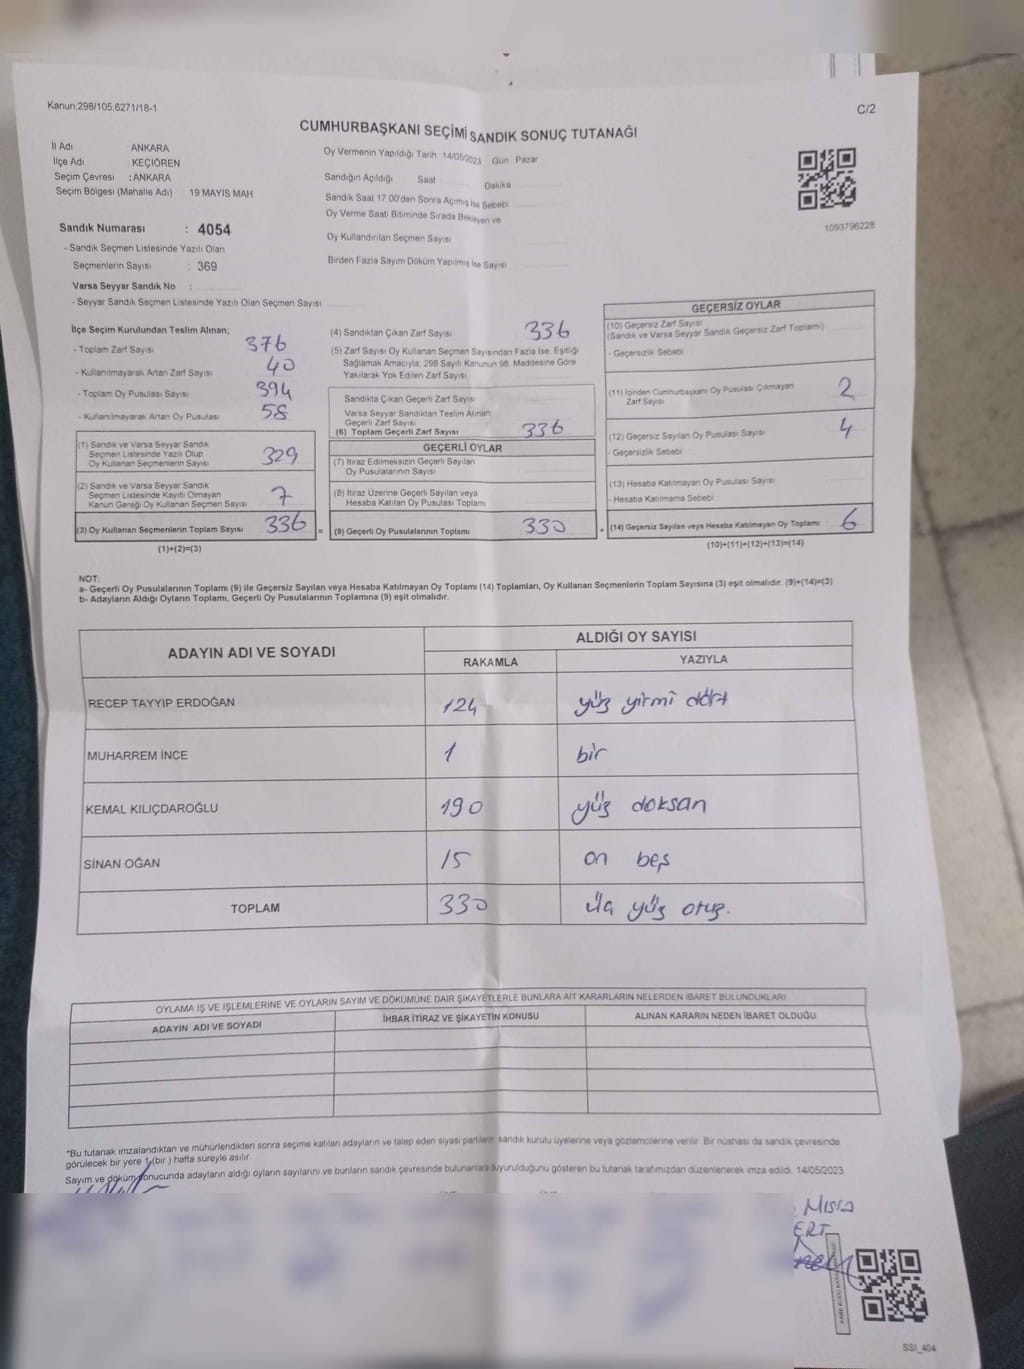 Kanun;298/105,6271/18-1
C/2
CUMHURBAŞKANI SEÇİMİ SANDIK SONUÇ TUTANAĞI
İl Adı ANKARA
İlçe Adı : KEÇİÖREN
Seçim Çevresi : ANKARA
Seçim Bölgesi (Mahalle Adı) 19 MAYIS MAH
Oy Vermenin Yapıldığı Tarih 14/05/2023 Gün Pazar
Sandığın Açıldığı Saat Dakika
Sandık Saat 17.00'den Sonra Açımış İse Sebebi
Oy Verme Saati Bitiminde Sırada Bekleyen ve
Oy Kullandırılan Seçmen Sayısı
Birden Fazla Sayım Döküm Yapılmış İse Sayısı
1093796228
Sandık Numarası : 4054
- Sandık Seçmen Listesinde Yazılı Olan
Seçmenlerin Sayısı : 369
Varsa Seyyar Sandık No :
- Seyyar Sandık Seçmen Listesinde Yazılı Olan Seçmen Sayısı
İlçe Seçim Kurulundan Teslim Alınan;
- Toplam Zarf Sayısı 376
- Kullanılmayarak Artan Zarf Sayısı 40
- Toplam Oy Pusulası Sayısı 394
- Kullanılmayarak Artan Oy Pusulası 58
(1) Sandık ve Varsa Seyyar Sandık
Seçmen Listesinde Yazılı Olup
Oy Kullanan Seçmenlerin Sayısı 329
(2) Sandık ve Varsa Seyyar Sandık
Seçmen Listesinde Kayıtlı Olmayan
Kanun Gereği Oy Kullanan Seçmen Sayısı 7
(3) Oy Kullanan Seçmenlerin Toplam Sayısı 336 =
(1)+(2)=(3)
(4) Sandıktan Çıkan Zarf Sayısı 336
(5) Zarf Sayısı Oy Kullanan Seçmen Sayısından Fazla İse, Eşitliği
Sağlamak Amacıyla, 298 Sayılı Kanunun 98. Maddesine Göre
Yakılarak Yok Edilen Zarf Sayısı
Sandıkta Çıkan Geçerli Zarf Sayısı
Varsa Seyyar Sandıktan Teslim Alınan
Geçerli Zarf Sayısı
(6) Toplam Geçerli Zarf Sayısı 336
GEÇERLİ OYLAR
(7) İtiraz Edilmeksizin Geçerli Sayılan
Oy Pusulalarının Sayısı
(8) İtiraz Üzerine Geçerli Sayılan veya
Hesaba Katılan Oy Pusulası Toplamı
(9) Geçerli Oy Pusulalarının Toplamı 330 +
GEÇERSİZ OYLAR
(10) Geçersiz Zarf Sayısı
(Sandık ve Varsa Seyyar Sandık Geçersiz Zarf Toplamı)
- Geçersizlik Sebebi
(11) İçinden Cumhurbaşkanı Oy Pusulası Çıkmayan
Zarf Sayısı 2
(12) Geçersiz Sayılan Oy Pusulası Sayısı 4
- Geçersizlik Sebebi
(13) Hesaba Katılmayan Oy Pusulası Sayısı
- Hesaba Katılmama Sebebi
(14) Geçersiz Sayılan veya Hesaba Katılmayan Oy Toplamı 6
(10)+(11)+(12)+(13)=(14)
NOT:
a- Geçerli Oy Pusulalarının Toplamı (9) ile Geçersiz Sayılan veya Hesaba Katılmayan Oy Toplamı (14) Toplamları, Oy Kullanan Seçmenlerin Toplam Sayısına (3) eşit olmalıdır. (9)+(14)=(3)
b- Adayların Aldığı Oyların Toplamı, Geçerli Oy Pusulalarının Toplamına (9) eşit olmalıdır.
ADAYIN ADI VE SOYADI ALDIĞI OY SAYISI
RAKAMLA YAZIYLA
RECEP TAYYİP ERDOĞAN 124 yüz yirmi dört
MUHARREM İNCE 1 bir
KEMAL KILIÇDAROĞLU 190 yüz doksan
SİNAN OĞAN 15 on beş
TOPLAM 330 üç yüz otuz.
OYLAMA İŞ VE İŞLEMLERİNE VE OYLARIN SAYIM VE DÖKÜMÜNE DAİR ŞİKAYETLERLE BUNLARA AİT KARARLARIN NELERDEN İBARET BULUNDUKLARI
ADAYIN ADI VE SOYADI İHBAR İTİRAZ VE ŞİKAYETİN KONUSU ALINAN KARARIN NEDEN İBARET OLDUĞU
*Bu tutanak imzalandıktan ve mühürlendikten sonra seçime katılan adayların ve talep eden siyasi partilerin sandık kurulu üyelerine veya gözlemcilerine verilir. Bir nüshası da sandık çevresinde
görülecek bir yere 1 (bir ) hafta süreyle asılır.
Sayım ve döküm sonucunda adayların aldığı oyların sayılarını ve bunların sandık çevresinde bulunanlara duyurulduğunu gösteren bu tutanak tarafımızdan düzenlenerek imza edildi. 14/05/2023
ERT
SSI_404